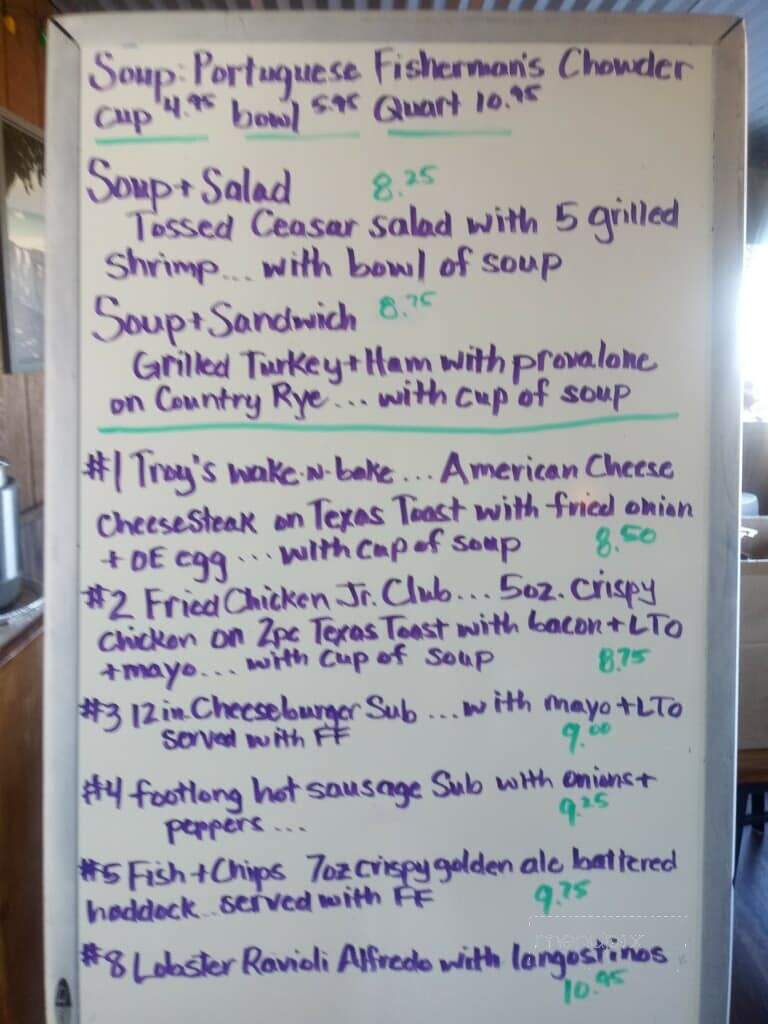 Soup: Portuguese Fisherman's Chowder
cup 4.95 bowl 5.95 Quart 10.95
Soup + Salad 8.25
Tossed Ceasar salad with 5 grilled
shrimp... with bowl of soup
Soup + Sandwich 8.75
Grilled Turkey + Ham with provalone
on Country Rye... with cup of soup
#1 Troy's wake-n-bake... American Cheese
CheeseSteak on Texas Toast with fried onion
+ OE egg... with cup of soup 8.50
#2 Fried Chicken Jr. Club... 5oz. crispy
chicken on 2pc Texas Toast with bacon + LTO
+ mayo... with cup of soup 8.75
#3 12in. Cheeseburger Sub... with mayo + LTO
served with FF 9.00
#4 footlong hot sausage Sub with onions +
peppers... 9.25
#5 Fish + Chips 7oz crispy golden ale battered
haddock.. served with FF 9.75
#8 Lobster Ravioli Alfredo with langostinos
10.95